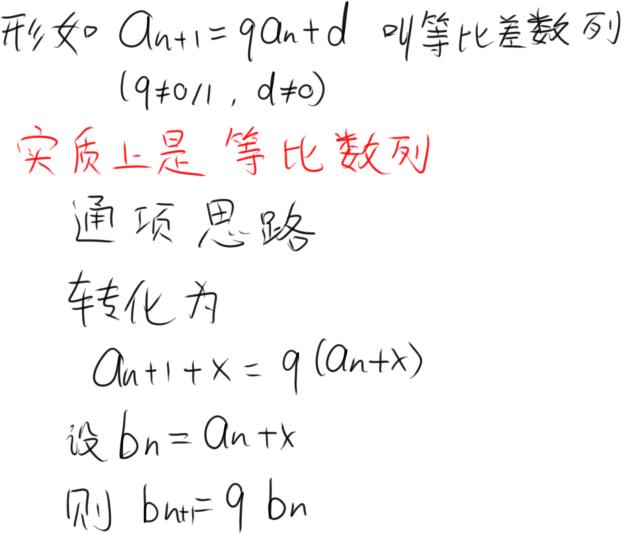 形如 an+1=qan+d 叫等比差数列
(q≠0/1, d≠0)
实质上是 等比数列
通项思路
转化为
an+1+x=q(an+x)
设bn=an+x
则 bn+1=q bn